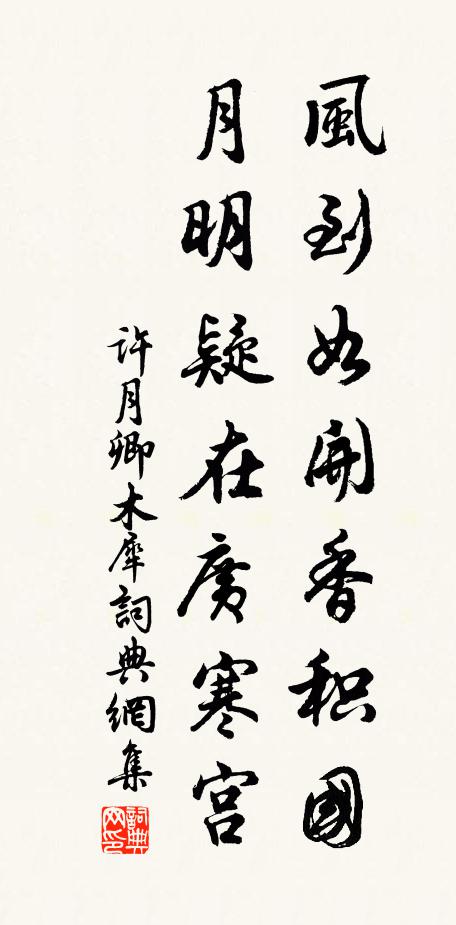 風到如開香积國
月明疑在廣寒宫
許月卿木犀詞典網集
詞典
网印